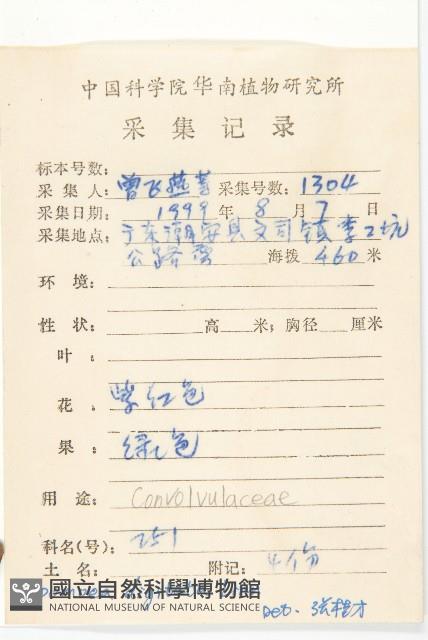 中国科学院华南植物研究所
采集记录
标本号数:
采集人: 曾飞燕等 采集号数: 1304
采集日期: 1999 年 8 月 7 日
采集地点: 广东潮安县文祠镇李工坑
公路旁 海拨 460 米
环境:
性状: 高 米; 胸径 厘米
叶:
花: 紫红色
果: 绿色
用途: Convolvulaceae
科名(号): 251
土名: 附记: 4份
國立自然科學博物館
NATIONAL MUSEUM OF NATURAL SCIENCE
Det.